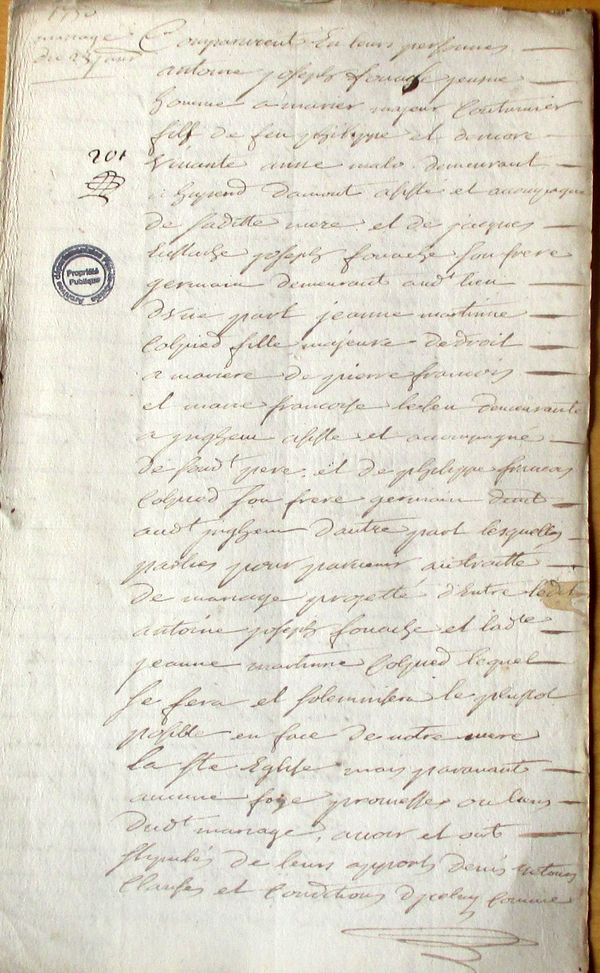 1770
mariage
du 25 janv
Comparurent En leurs personnes
antoine joseph fouache jeune
homme a marier majeur Couturier
fils de feu philippe et de encore
vivante anne malo demeurant
a hupend d'amont assisté et accompagné
de sadtte mere et de jacques
Eustache joseph fouache son frere
germain demeurant audt lieu
d'une part jeanne martinne
Colpied fille majeure de droit
a mariere de pierre francois
et marie francoise leleu demeurante
a jnghem assisté et accompagné
de sondt pere et de philippe francois
Colpied son frere germain demt
audt jnghem d'autre part lesquelles
parties pour parvenir au traitté
de mariage projetté d'Entre ledit
antoine joseph fouache et ladte
jeanne martinne Colpied lequel
se fera et solemnisera le plustot
possible en face de notre mere
la Ste Eglise mais paravant
aucune foye promesse ou liens
dudt mariage, avoir et ont
stipulés de leurs apports devis retours
Clauses et Conditions d'jceluy Comme
201
Propriété
Publique
Archives